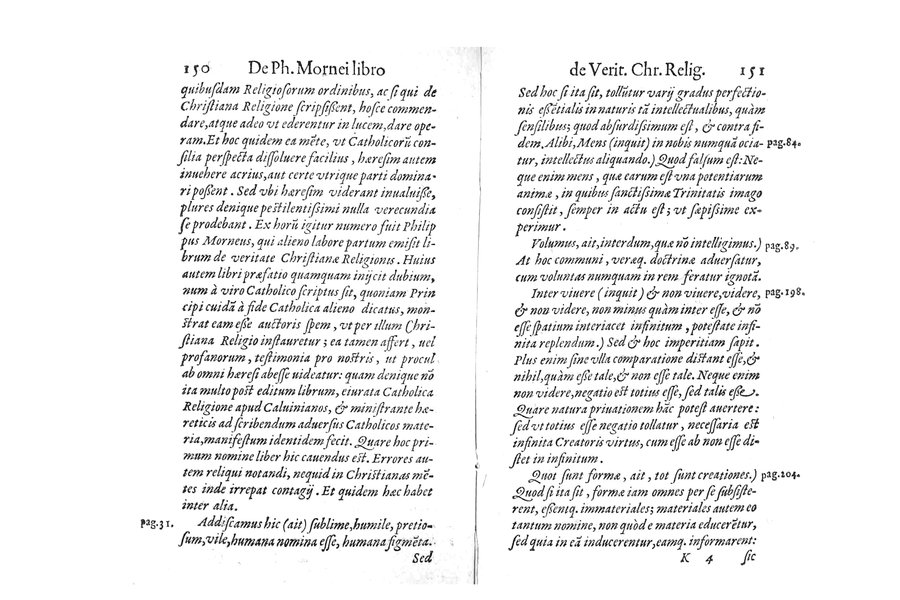 150 De Ph. Mornei libro
quibuſdam Religioſorum ordinibus, ac ſi qui de
Chriſtiana Religione ſcripſiſſent, hoſce commen-
dare, atque adeo vt ederentur in lucem, dare ope-
ram. Et hoc quidem ea mēte, vt Catholicorū con-
ſilia perſpecta diſſoluere facilius, hæreſim autem
inuehere acrius, aut certe vtrique parti domina-
ri poſſent. Sed vbi hæreſim viderant inualuiſſe,
plures denique peſtilentiſſimi nulla verecundia
ſe prodebant. Ex horū igitur numero fuit Philip
pus Morneus, qui alieno labore partum emiſit li-
brum de veritate Chriſtianæ Religionis. Huius
autem libri præfatio quamquam inijcit dubium,
num à viro Catholico ſcriptus ſit, quoniam Prin
cipi cuidā à fide Catholica alieno dicatus, mon-
ſtrat eam eſſe auctoris ſpem, vt per illum Chri-
ſtiana Religio inſtauretur; ea tamen affert, uel
profanorum, teſtimonia pro noſtris, ut procul
ab omni hæreſi abeſſe uideatur: quam denique nō
ita multo poſt editum librum, eiurata Catholica
Religione apud Caluinianos, & miniſtrante hæ-
reticis ad ſcribendum aduerſus Catholicos mate-
ria, manifeſtum identidem fecit. Quare hoc pri-
mum nomine liber hic cauendus eſt. Errores au-
tem reliqui notandi, nequid in Chriſtianas mē-
tes inde irrepat contagij. Et quidem hæc habet
inter alia.
pag.31. Addiſcamus hic (ait) ſublime, humile, pretio-
ſum, vile, humana nomina eſſe, humana figmēta.
Sed
de Verit. Chr. Relig. 151
Sed hoc ſi ita ſit, tollūtur varij gradus perfectio-
nis eſſētialis in naturis tā intellectualibus, quàm
ſenſilibus; quod abſurdiſſimum eſt, & contra fi-
dem. Alibi, Mens (inquit) in nobis numquā ocia- pag.84.
tur, intellectus aliquando.) Quod falſum eſt: Ne-
que enim mens, quæ earum eſt vna potentiarum
animæ, in quibus ſanctiſſimæ Trinitatis imago
conſiſtit, ſemper in actu eſt; vt ſæpiſſime ex-
perimur.
Volumus, ait, interdum, quæ nō intelligimus.) pag.89.
At hoc communi, veræq. doctrinæ aduerſatur,
cum voluntas numquam in rem feratur ignotā.
Inter viuere (inquit) & non viuere, videre, pag.198.
& non videre, non minus quàm inter eſſe, & nō
eſſe ſpatium interiacet infinitum, poteſtate infi-
nita replendum.) Sed & hoc imperitiam ſapit.
Plus enim ſine vlla comparatione diſtant eſſe, &
nihil, quàm eſſe tale, & non eſſe tale. Neque enim
non videre, negatio eſt totius eſſe, ſed talis eſſe.
Quare natura priuationem hāc poteſt auertere:
ſed vt totius eſſe negatio tollatur, neceſſaria eſt
infinita Creatoris virtus, cum eſſe ab non eſſe di-
ſtet in infinitum.
Quot ſunt formæ, ait, tot ſunt creationes.) pag.104.
Quod ſi ita ſit, formæ iam omnes per ſe ſubſiſte-
rent, eſſentq. immateriales; materiales autem eo
tantum nomine, non quòd e materia educerētur,
ſed quia in eā inducerentur, eamq. informarent:
K 4 ſic